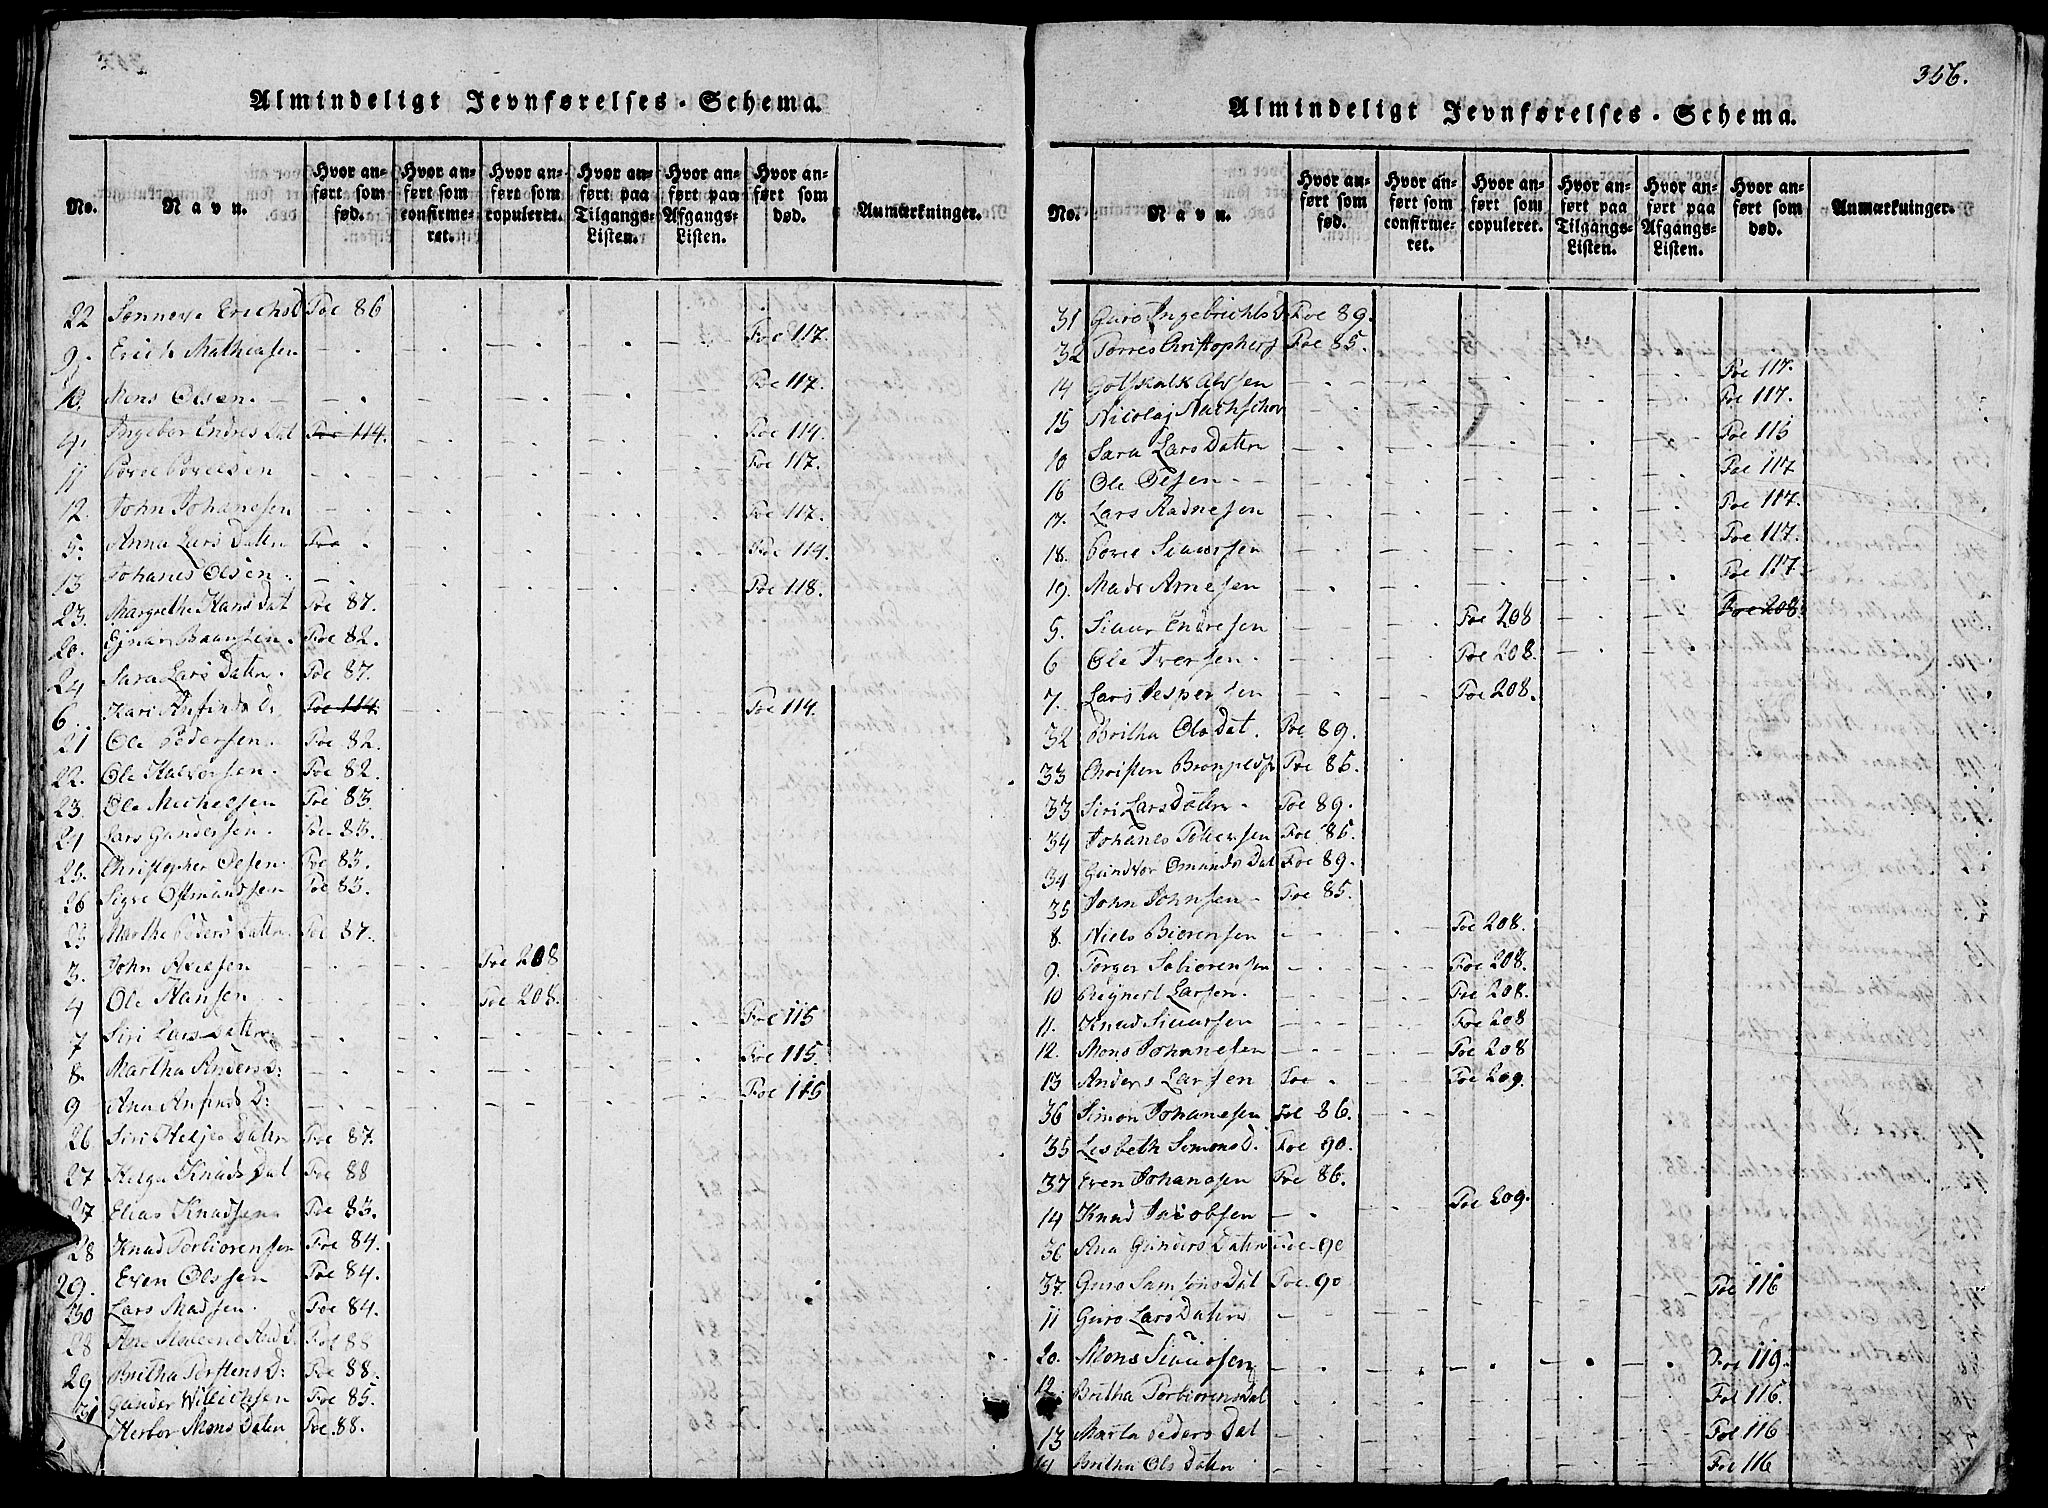 Almindeligt Jevnførelses-Schema.
No. Navn. Hvor anført som fød. Hvor anført som confirmeret. Hvor anført som copuleret. Hvor anført paa Tilgangs-Listen. Hvor anført paa Afgangs-Listen. Hvor anført som død. Anmærkninger.
22 Sønneve Erichs D Foe 86
9. Erich Mathiasen Foe 117.
10. Mons Olsen. Foe 117.
4. Ingebor Endres Dat Foe 114. Foe 114.
11 Povel Povelsen Foe 117.
12. John Johanesen Foe 117.
5. Anna Lars Datter Foe Foe 114.
13 Johanes Olsen. Foe 118.
23. Margrethe Hans Dat Foe 87.
20. Ejnar Foe 82.
24 Sara Lars Datter. Foe 87.
6. Kari Anfinds D: Foe 114. Foe 114.
21 Ole Pedersen. Foe 82.
22. Ole Halvorsen. Foe 82.
23. Ole Michelsen Foe 83.
24 Lars Gundersen. Foe 83.
25. Christopher Olsen. Foe 83.
26 Sigve Osmundsen Foe 83.
25 Marthe Peders Datter. Foe 87.
3. John Axelsen Foe 208
4 Ole Hansen Foe 208.
7 Siri Lars Datter Foe 115
8. Martha Anders D: Foe 115.
9 Ana Anfinds D: Foe 115
26 Siri Helje Datter Foe 87.
27 Helga Knuds Dat Foe 88
27 Elias Knudsen Foe 83.
28 Knud Torbiørensen Foe 84.
29. Even Olssen Foe 84.
30 Lars Madsen. Foe 84.
28 Ane Foe 88
29 Britha Torstens D: Foe 88.
31 Gunder Willichsen Foe 85.
Herbor Mons Datter Foe. 88.
356.
Almindeligt Jevnførelses-Schema.
No. Navn. Hvor anført som fød. Hvor anført som confirmeret. Hvor anført som copuleret. Hvor anført paa Tilgangs-Listen. Hvor anført paa Afgangs-Listen. Hvor anført som død. Anmærkninger.
31 Guro Ingebrichts D Foe 89.
32 Torres Christophers Foe 85.
14 Gotskalk Foe 117.
15 Nicolaj Foe 117.
10 Sara Lars Datter Foe 115
16 Ole Olsen. Foe 117
17. Lars Aadnesen Foe 117.
18. Povel Siursen Foe 117.
19. Mads Arnesen Foe 117.
5. Siur Endresen Foe 208 Foe 208.
6 Ole Iversen. Foe 208.
7. Lars Jespersen Foe 208.
32 Britha Ols Dat. Foe 89.
33 Christen Foe 85.
33 Siri Lars Datter. Foe 89.
34 Johanes Pettersen Foe 85.
34 Gundvor Omunds Dat Foe 89.
35 John Johnsen. Foe 85.
8. Niels Biørensen Foe 208.
9. Torger Sebiørensen Foe 208.
10 Reinert Larsen. Foe 208.
11. Knud Siursen Foe 208
12. Mons Johanesen Foe 208
13 Anders Larsen Foe Foe 209.
36 Simon Johanesen Foe 86.
35 Lisbeth Simons D. Foe 90.
37 Even Johanesen Foe 86.
14 Knud Jacobsen Foe 209.
36 Ana Gunders Datter Foe 90
37. Guro Samsons Dat Foe. 90
11 Guro Lars Datter Foe 116
20. Mons Siursen Foe 119.
12. Britha Torbiørens Dat Foe 116.
13 Marta Peders Dat Foe 116
14 Britha Ols Datter Foe 116